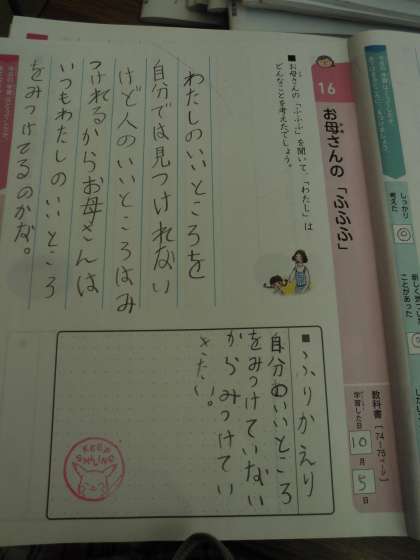 16
お母さんの「ふふふ」
教科書〔74～75ページ〕
学習した日 10月5日
■お母さんの「ふふふ」を聞いて、「わたし」は
どんなことを考えたでしょう。
わたしのいいところを
自分では見つけれない
けど人のいいところはみ
つけれるからお母さんは
いつもわたしのいいところ
をみつけてるのかな。
■ふりかえり
自分のいいところ
をみつけていない
からみつけてい
きたい。
KEEP
SMILING
しっかり
考えた
新しく気づいた
ことがあった